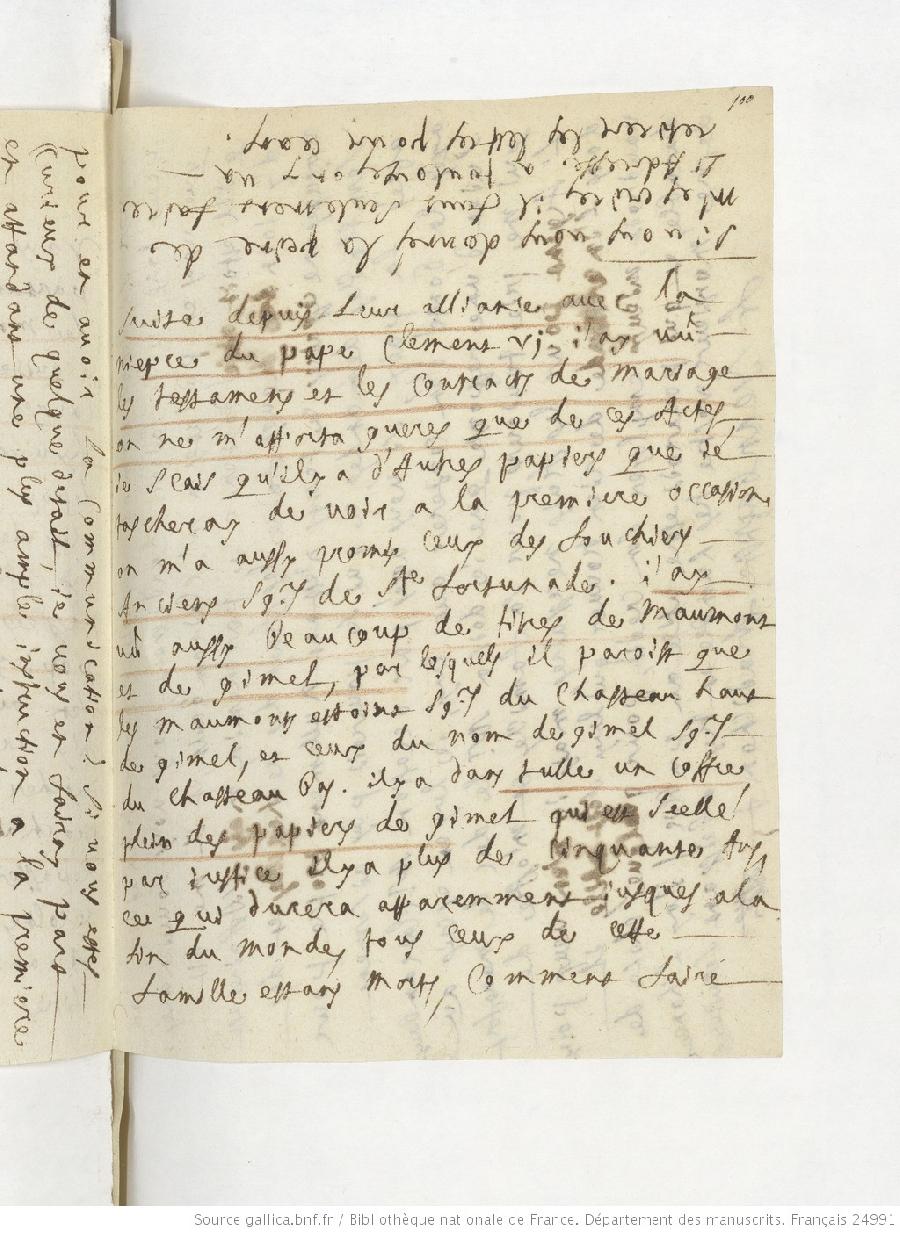 100
Si vous vous donnes la peine de
m'escrire il faus seulement faire
l'adresse a Toulouse on y va
retirer les lettres pour ceans.
suite depuis Leur alliance avec la
niepce du pape Clement vj j'ay vû
les testamens et les Contracts de mariage
on ne m'apporta gueres que de ces Actes,
ie scais qu'il y a d'Autres papiers que ie
tascheray de voir a la premiere occasion
on m'a aussy promis ceux des fouchiers
Anciens Sgrs de Ste fortunade. j'ay
vû aussy Beaucoup de titres de Maumont
et de gimel, par lesquels il paroist que
les maumons estoint Sgrs du Chasteau haut
de gimel, et ceux du nom de gimel Sgrs
du Chasteau Bas. il y a dans tulle un Coffre
plein des papiers de gimel qui est scellé
par iustice il y a plus de Cinquante Ans,
ce qui durera apparemment jusques a la
fin du monde, tous ceux de cette
famille estans morts, Comment faire
pour en avoir la Communication? Si vous estes
Curieux de quelque detail, ie vous en fairay part
en attandant une plus ample instruction, a la premiere
Source gallica.bnf.fr / Bibliothèque nationale de France. Département des manuscrits. Français 24991